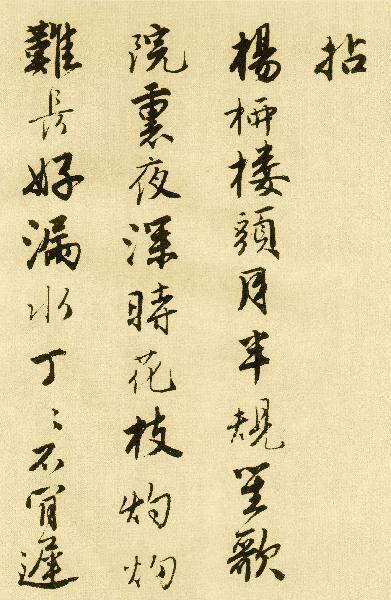 拈
楊桺楼頭月半規笙歌
院裏夜深時花枝灼灼
難長好漏水丁〻不肎遲